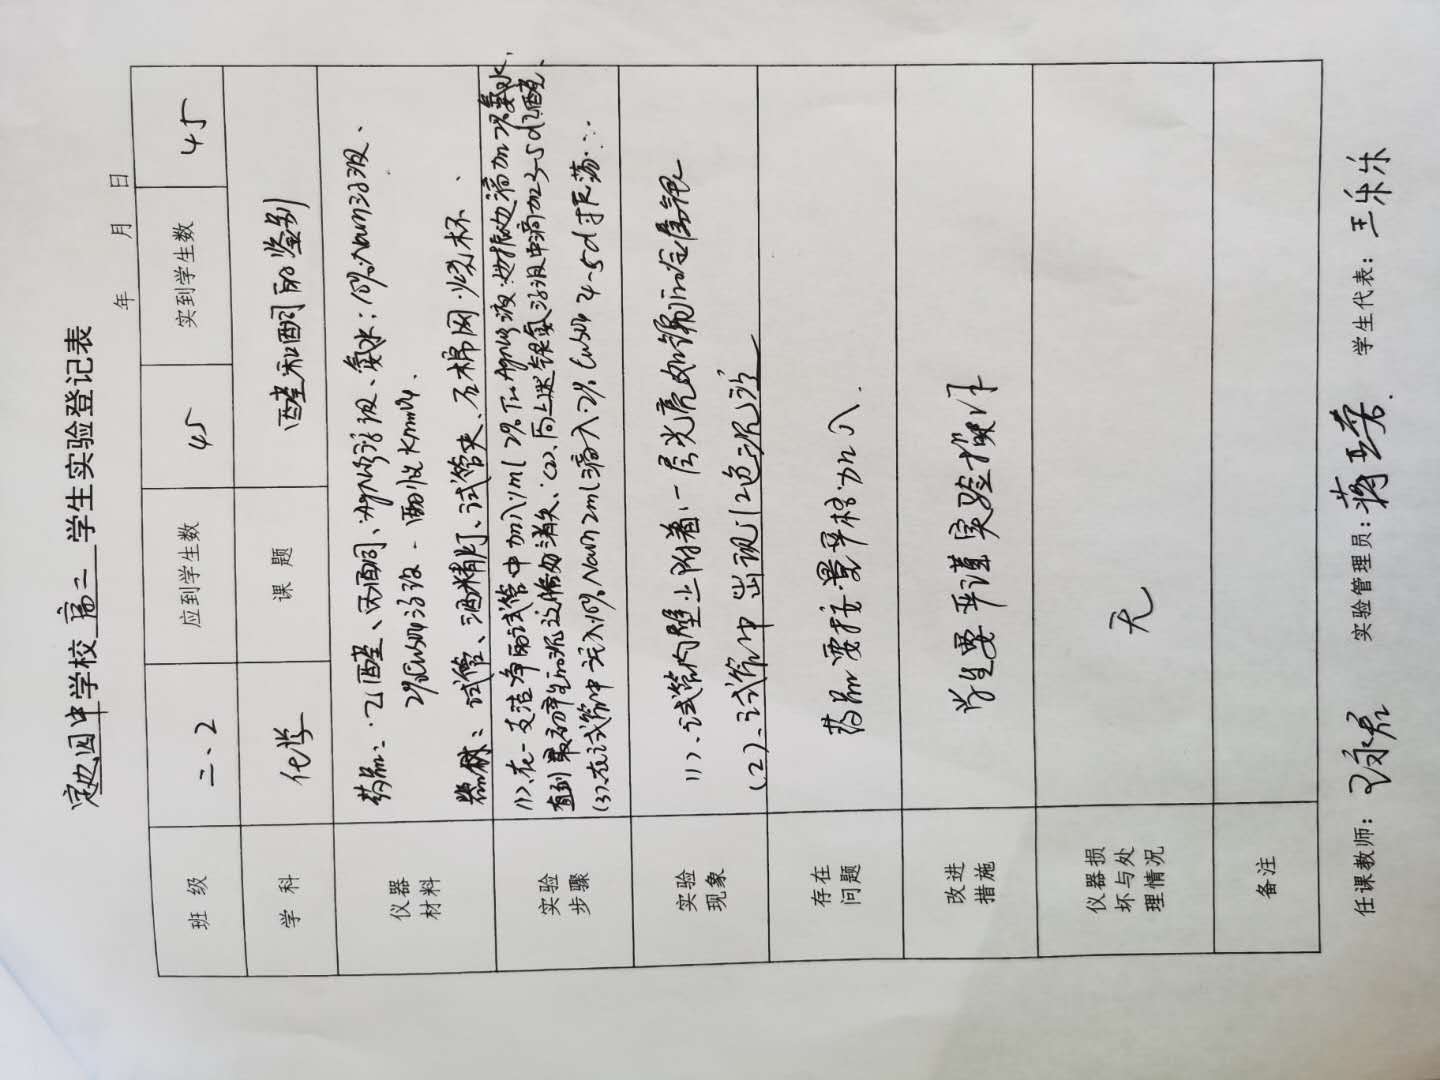 定边四中学校 高二 学生实验登记表
年 月 日
班 级 二、2 应到学生数 45 实到学生数 45
学 科 化学 课 题 醛和酮的鉴别
仪器
材料
药品：乙醛、丙酮、AgNO3溶液、氨水；10%NaOH溶液、
2%CuSO4溶液
器材：试管、酒精灯、试管夹、石棉网、烧杯
实验
步骤
(1)、在一支洁净的试管中加入1ml 2% AgNO3液，边振边滴加2%氨水，
直到最初产生的沉淀 消失、(2)、向上述银氨溶液中滴加3~5d乙醛、
(3)、在试管中 10%NaOH 2ml滴入2% CuSO4 4~5d 振荡
实验
现象
(1)、试管内壁上附着一层光亮如镜的金属银
(2)、试管中出现红色沉淀
存在
问题
药品要按量 加入.
改进
措施
学生要严谨实验操作
仪器损
坏与处
理情况
无
备注
任课教师： 实验管理员： 学生代表：王乐乐